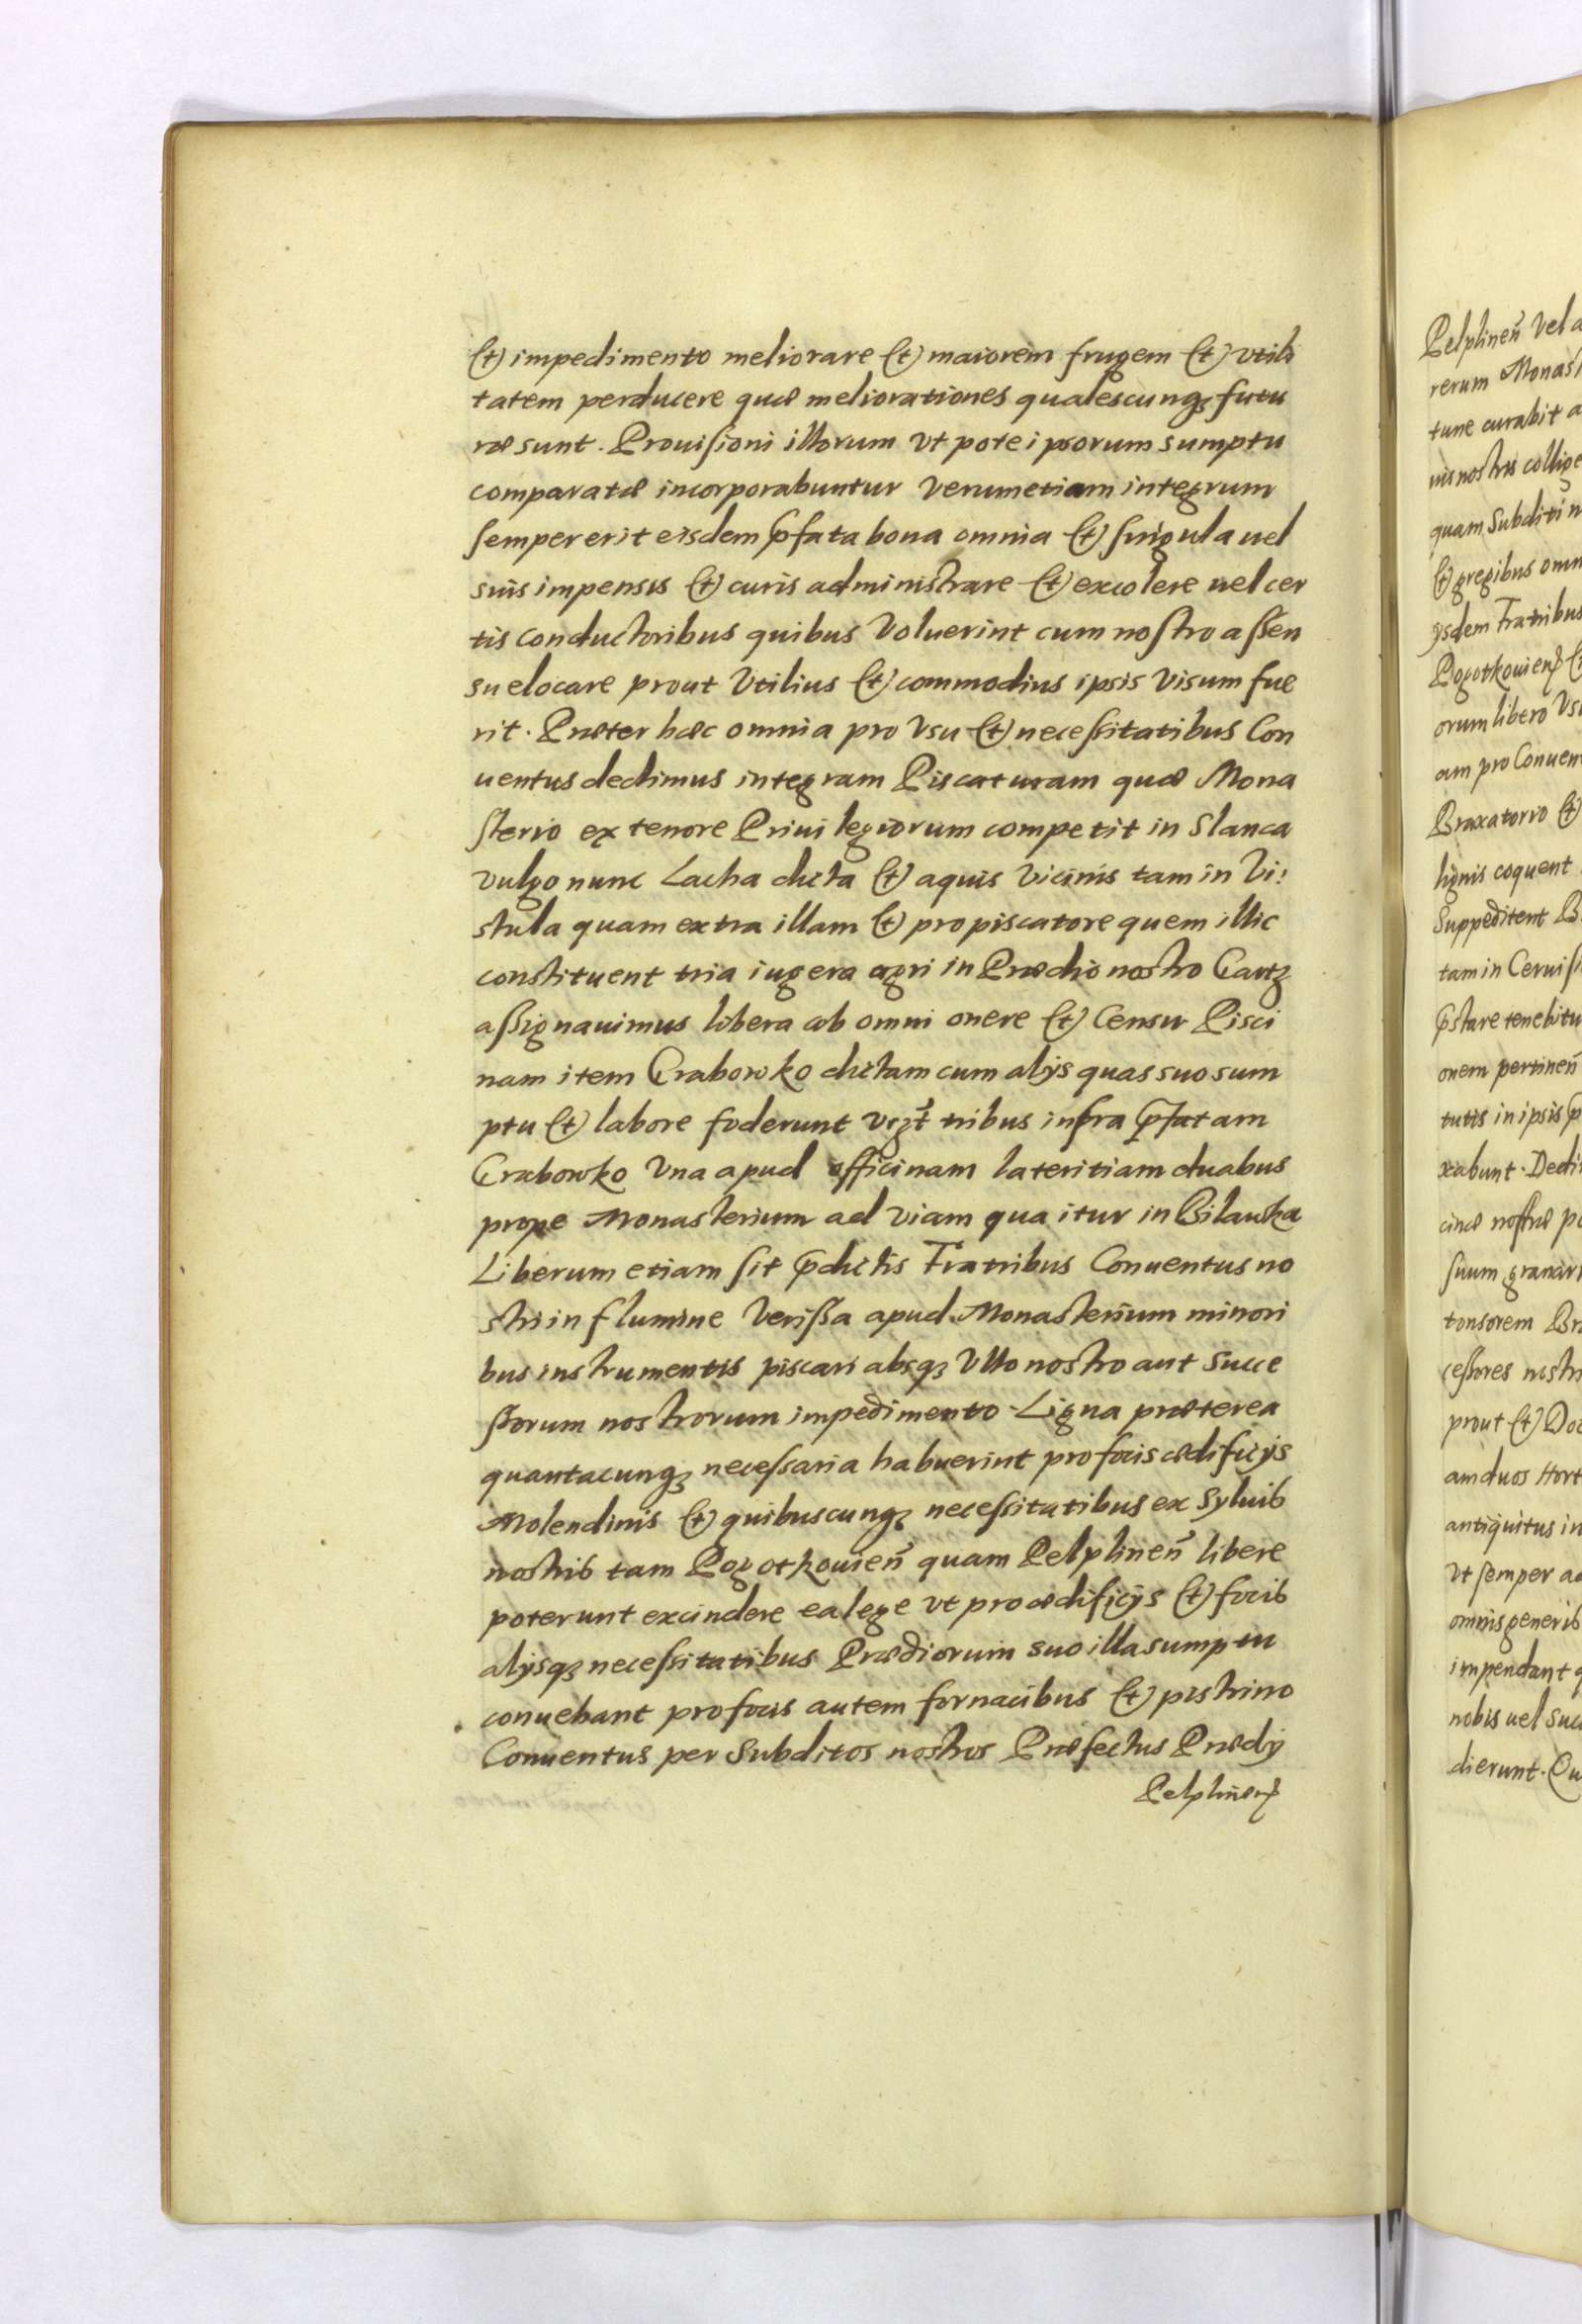 (et) impedimento meliorare (et) maiorem frugem (et) vtili
tatem perducere quæ meliorationes qualescunqȝ futu
ræ sunt. Prouisioni illorum vt pote ipsorum sumptu
comparatæ incorporabuntur Verumetiam integrum
semper erit eisdem p̃fata bona omnia (et) singula uel
suis impensis (et) curis administrare (et) excolere uel cer
tis conductoribus quibus Voluerint cum nostro assen
su elocare prout Vtilius (et) commodius ipsis Visum fue
rit. Præter hæc omnia pro Vsu (et) necessitatibus Con
uentus dedimus integram Piscaturam quæ Mona
sterio ex tenore Priuilegiorum competit in Slanca
vulgo nunc Lacha dicta (et) aquis Vicinis tam in Vi:
stula quam extra illam (et) pro piscatore quem illic
constituent tria iugera agri in Prædio nostro Gartz
assignauimus libera ab omni onere (et) Censu Pisci
nam item Grabowko dictam cum alijs quas suo sum
ptu (et) labore foderunt vqȝt̃ tribus infra p̃fatam
Grabowko Vna apud officinam lateritiam duabus
prope Monasterium ad viam qua itur in Bilauska
Liberum etiam sit p̃dictis Fratribus Conuentus no
stri in flumine Verissa apud Monasterium minori
bus instrumentis piscari absqȝ Vllo nostro aut Succe
ssorum nostrorum impedimento. Ligna præterea
quantacunqȝ necessaria habuerint pro focis ædificijs
Molendinis (et) quibuscunqȝ necessitatibus ex Syluis
nostris tam Pogotkouien̄ quam Pelplinen̄ libere
poterunt excindere ea lege vt pro ædificijs (et) focis
alijsqȝ necessitatibus Prædiorum suo illa sumptu
conuehant pro focis autem fornacibus (et) pistrino
Conuentus per Subditos nostros Præfectus Prædij
Pelplinenȝ

Pelplinen̄ Vel a
rerum Monast
tune curabit a
uis nostris collige
quam Subditi n
(et) gregibus omn
ijsdem Fratribus
Pogotkouienȝ (et
orum libero Vsu
am pro Conuen
Braxatorio (et)
lignis coquent
Suppeditent B
tam in Ceruisi
p̃stare tenebitu
onem pertinen̄
tutis in ipsis p
xabunt. Dedi
cinæ nostræ po
suum granari
tonsorem Br
cessores nostri
prout (et) Doc
am duos Hort
antiquitus in
Vt semper ad
omnis generis
impendant q
nobis uel Suc
dierunt. Qu